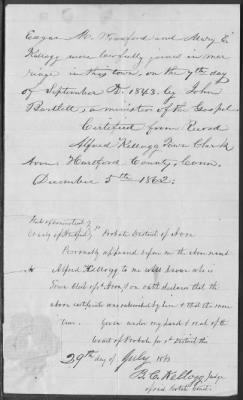 M. Kinsford and Mary E.
Kellogg were lawfully joined in mar
riage in this town, on the 7th day
of September D. 1843. by John
Bartlett, a minister of the Gospel.
Certified from Record
Alfred Kellogg Town Clerk
Avon Hartford County, Conn.
December 5th 1862.
State of Connecticut }
County of Hartford } ss Probate District of Avon
Personally appeared before me the above named
Alfred Kellogg to me well known who is
Town Clerk of Avon, & on oath declares that the
above certificate was subscribed by him & that the same
is true. Given under my hand & seal of the
Court of Probate for sd District this
29th day of July 1863
B. C. Kellogg Judge
of said Probate Court.